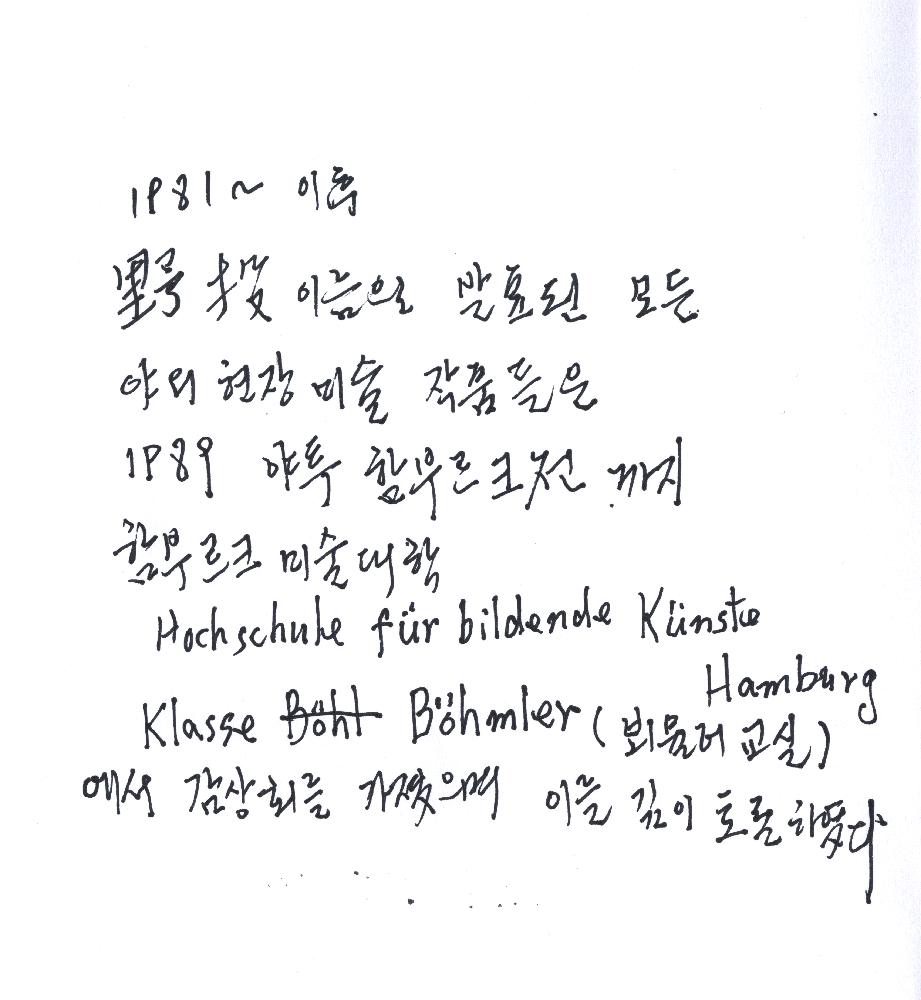 1981~ 이후
野投 이름으로 발표된 모든
야외 현장 미술 작품들은
1989 야투 함부르크전 까지
함부르크 미술대학
Hochschule für bildende Künste
Hamburg
Klasse Böhl Böhmler (뵈믈러 교실)
에서 감상회를 가졌으며 이를 깊이 토론하였다